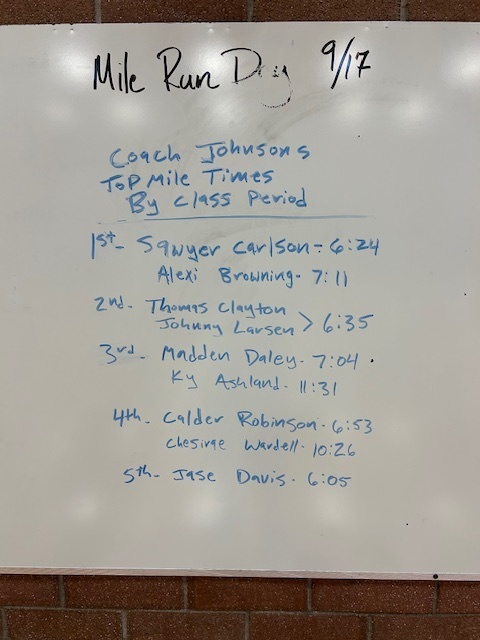 Mile Run Day 9/17
Coach Johnsons
Top Mile Times
By Class Period
1st- Sawyer Carlson - 6:24
Alexi Browning - 7:11
2nd- Thomas Clayton
Johnny Larsen > 6:35
3rd- Madden Daley - 7:04
Ky Ashland - 11:31
4th- Calder Robinson - 6:53
Wardell - 10:26
5th- Jase Davis - 6:05